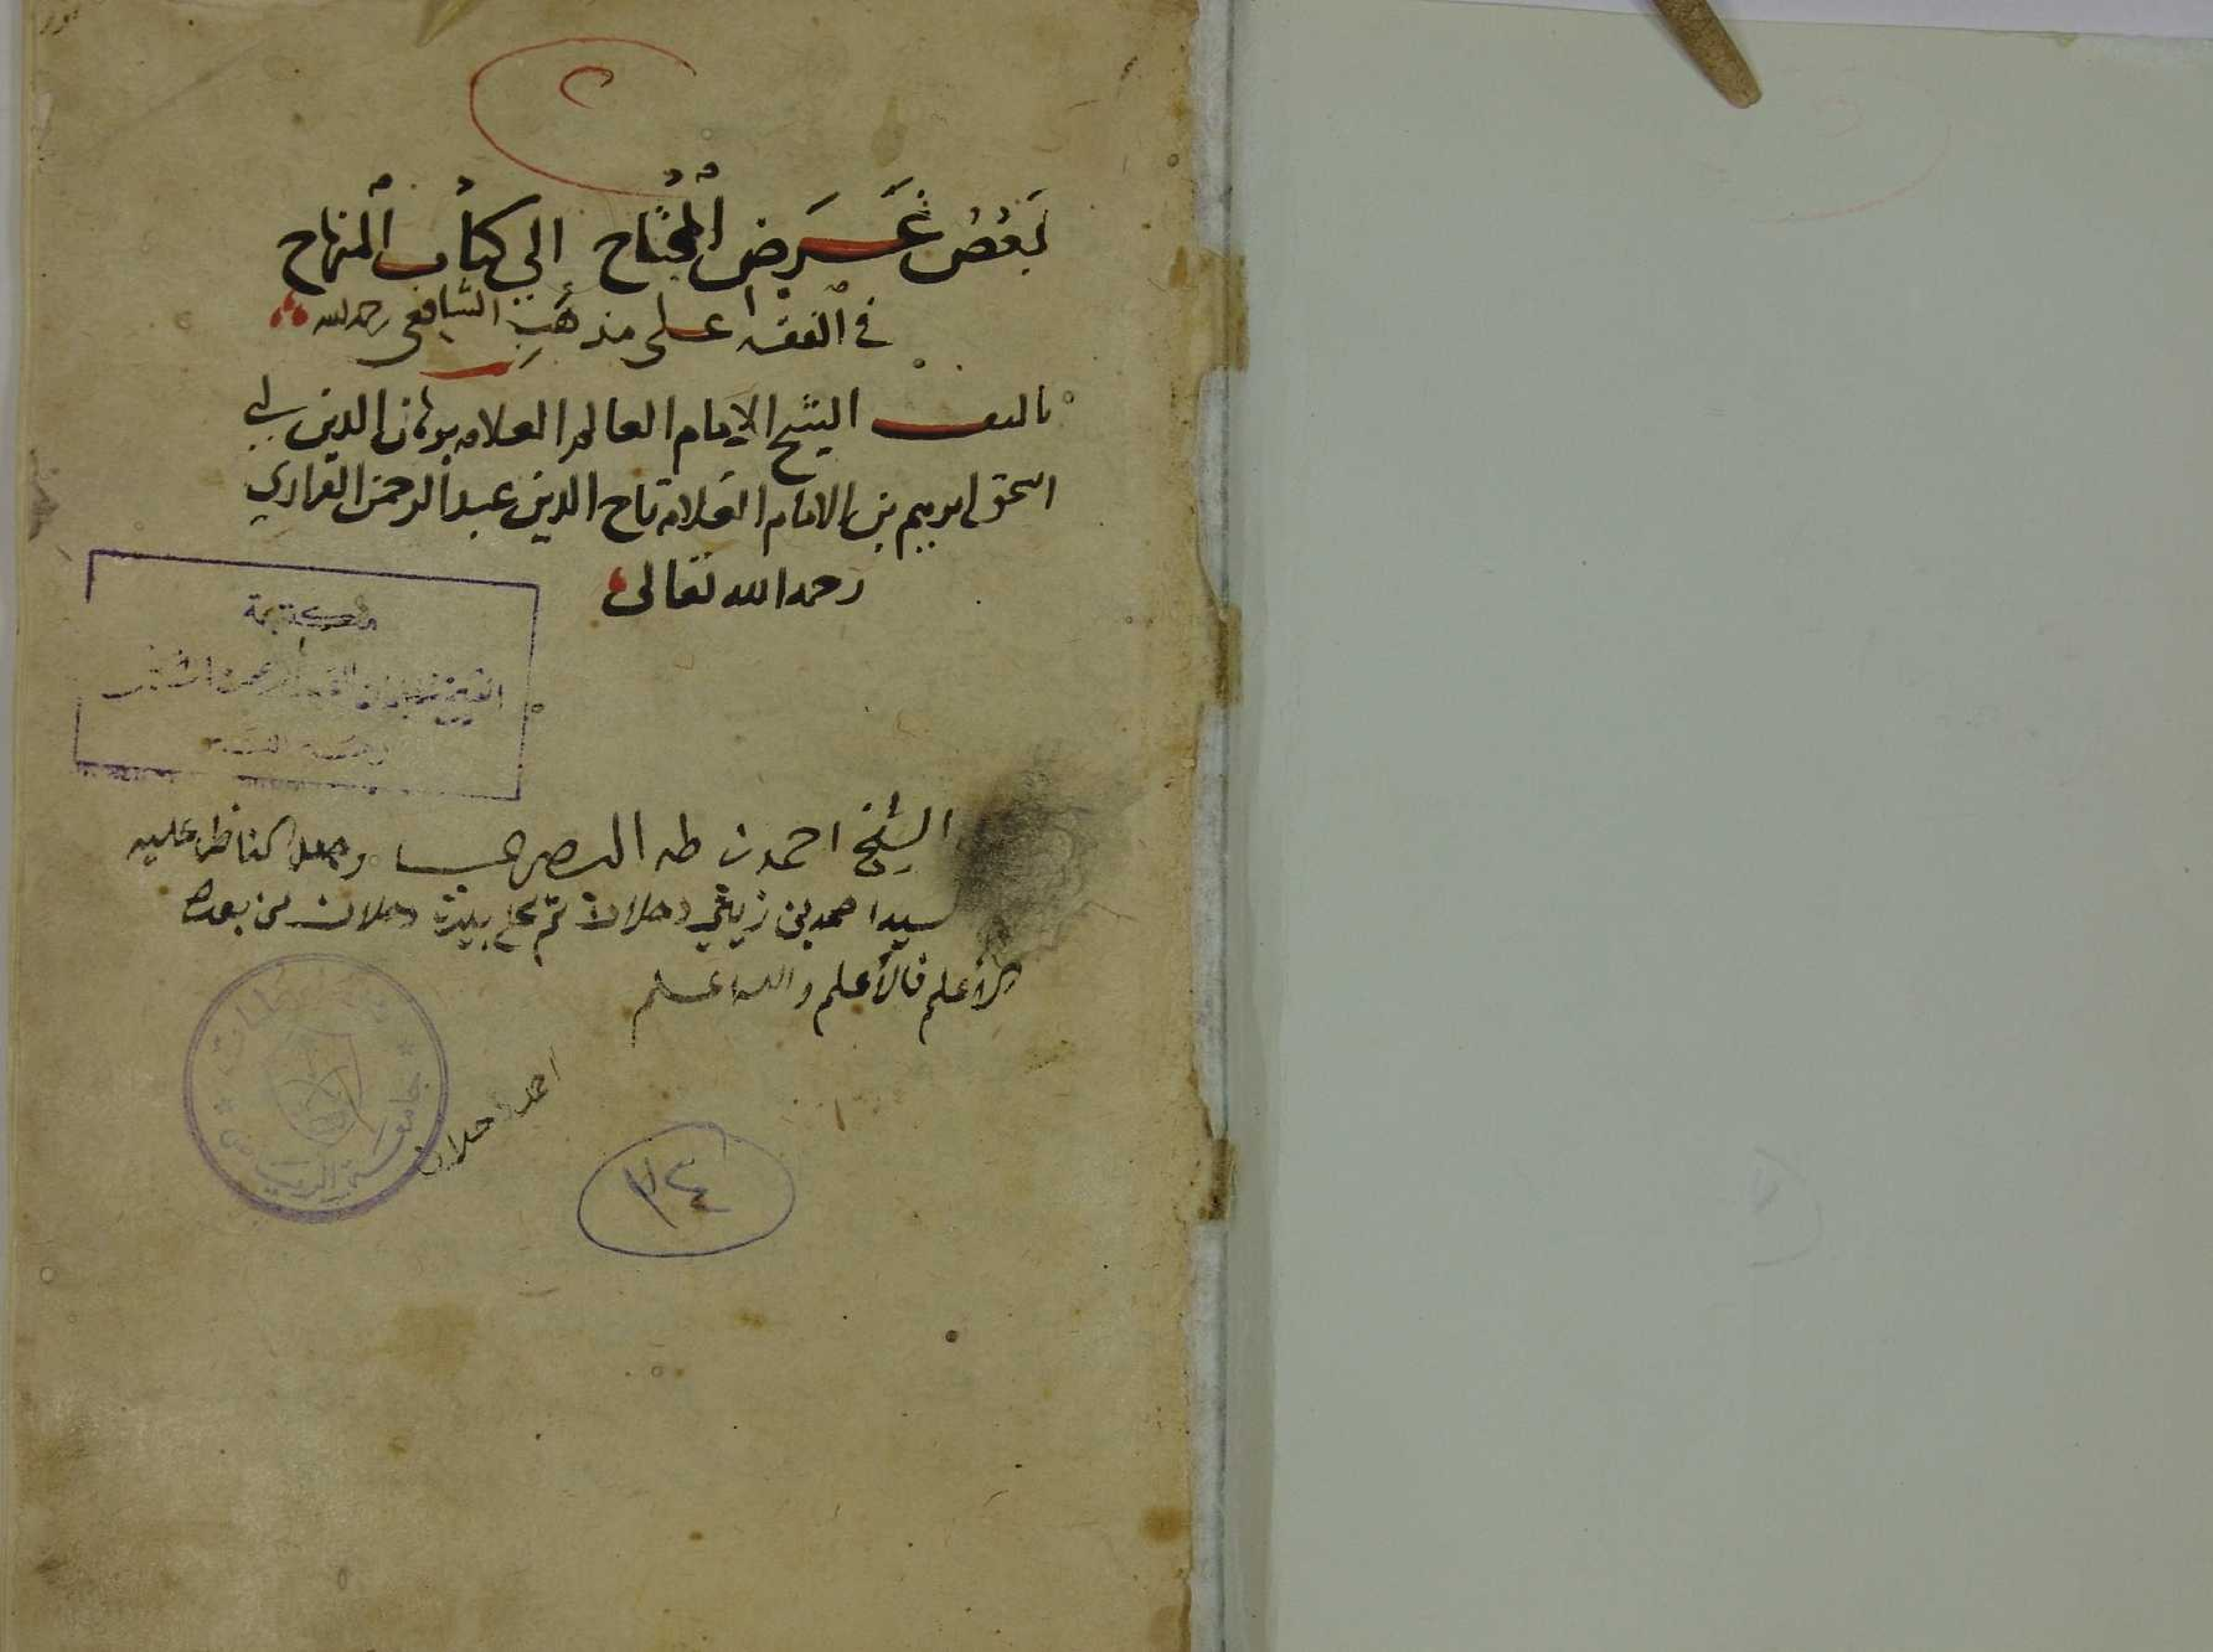 ٢
بَعْضُ غَرَضِ الْمُحْتَاج إلى كتَابِ الْمنهاج
في الْفقه على مذهَبِ الشافعى رحمه الله
تاليف الشيخ الامام العالم العلامه برهان الدين ابي
اسحق ابرهيم بن الامام العلامه تاج الدين عبد الرحمن الفزاري
رحمه الله تعالى
مكتبة
الشيخ احمد بن طه وجعل الناظر عليه
السيد احمد بن زيني دحلان ثم على بيت دحلان من بعده
الأعلم فالأعلم والله اعلم
احمد دحلان
جامعة الرياض
٣٤